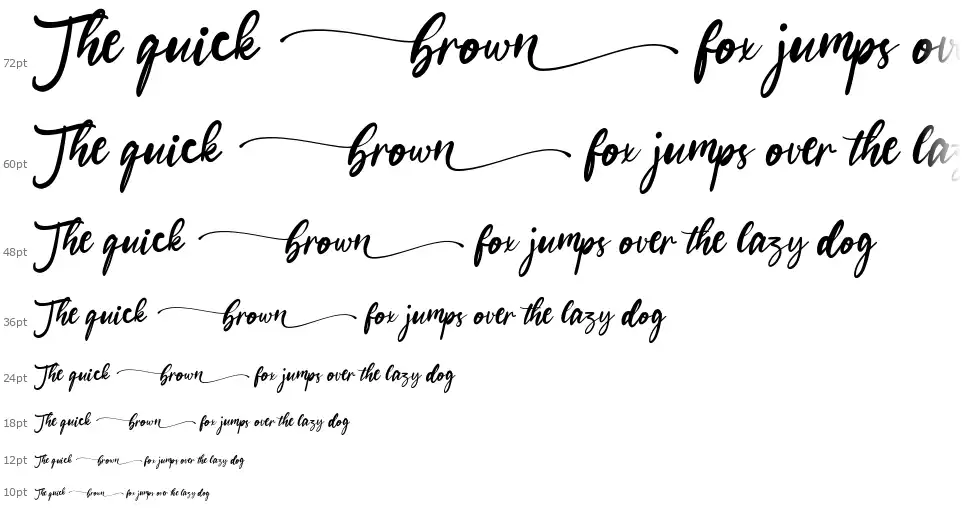 72pt The quick brown fox jumps ov
60pt The quick brown fox jumps over the laz
48pt The quick brown fox jumps over the lazy dog
36pt The quick brown fox jumps over the lazy dog
24pt The quick brown fox jumps over the lazy dog
18pt The quick brown fox jumps over the lazy dog
12pt The quick brown fox jumps over the lazy dog
10pt The quick brown fox jumps over the lazy dog